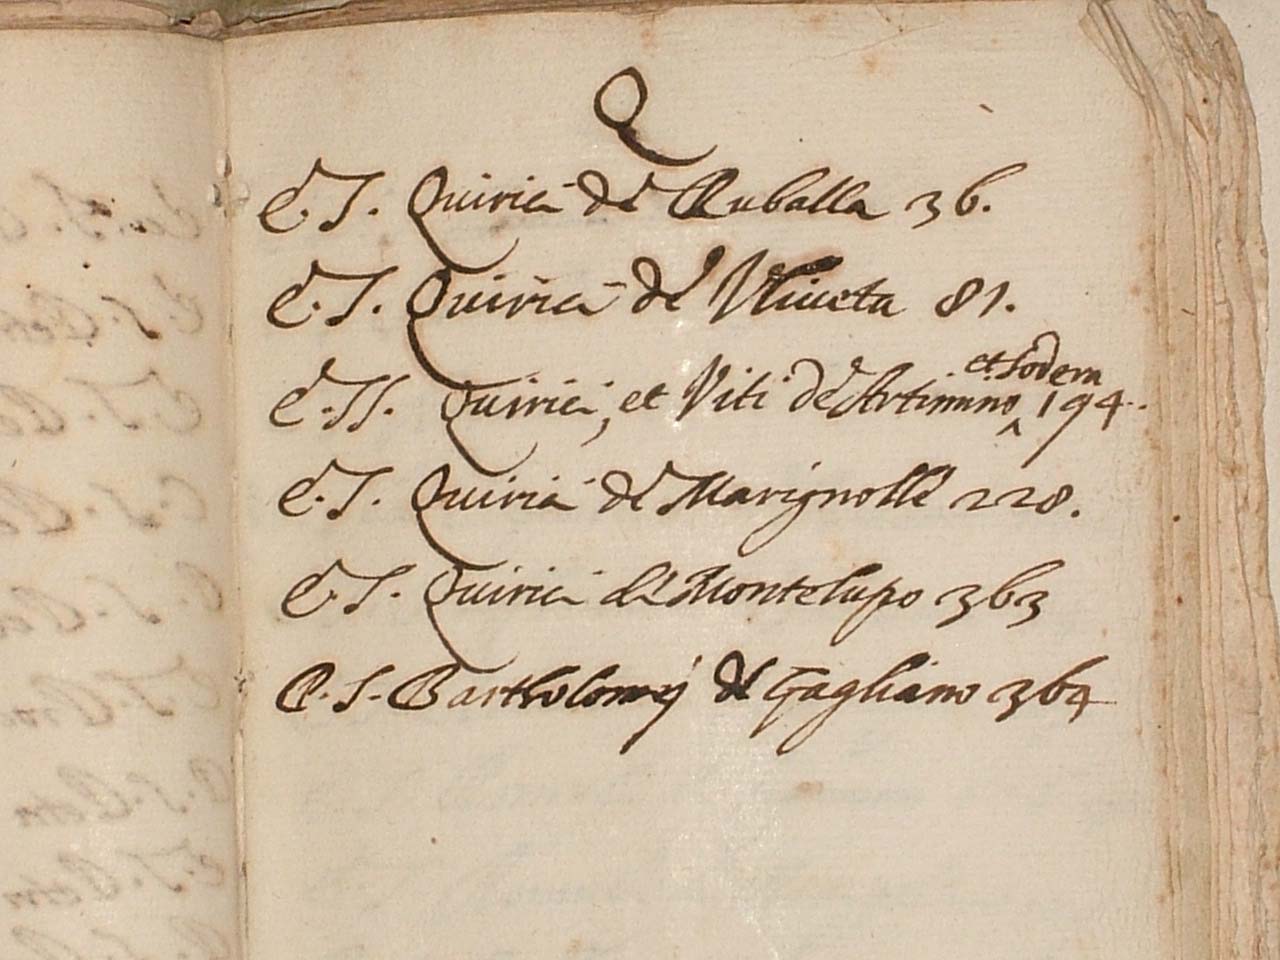 Q
E. S. Quirici de Ruballa 36.
E. S. Quirici de Vliueta 81.
E. SS. Quirici, et Viti de Artimino ^ et Sodera 194.
E. S. Quirici de Marignolle 228.
E. S. Quirici de Montelupo 363
E. S. Bartholomej de Gagliano 364